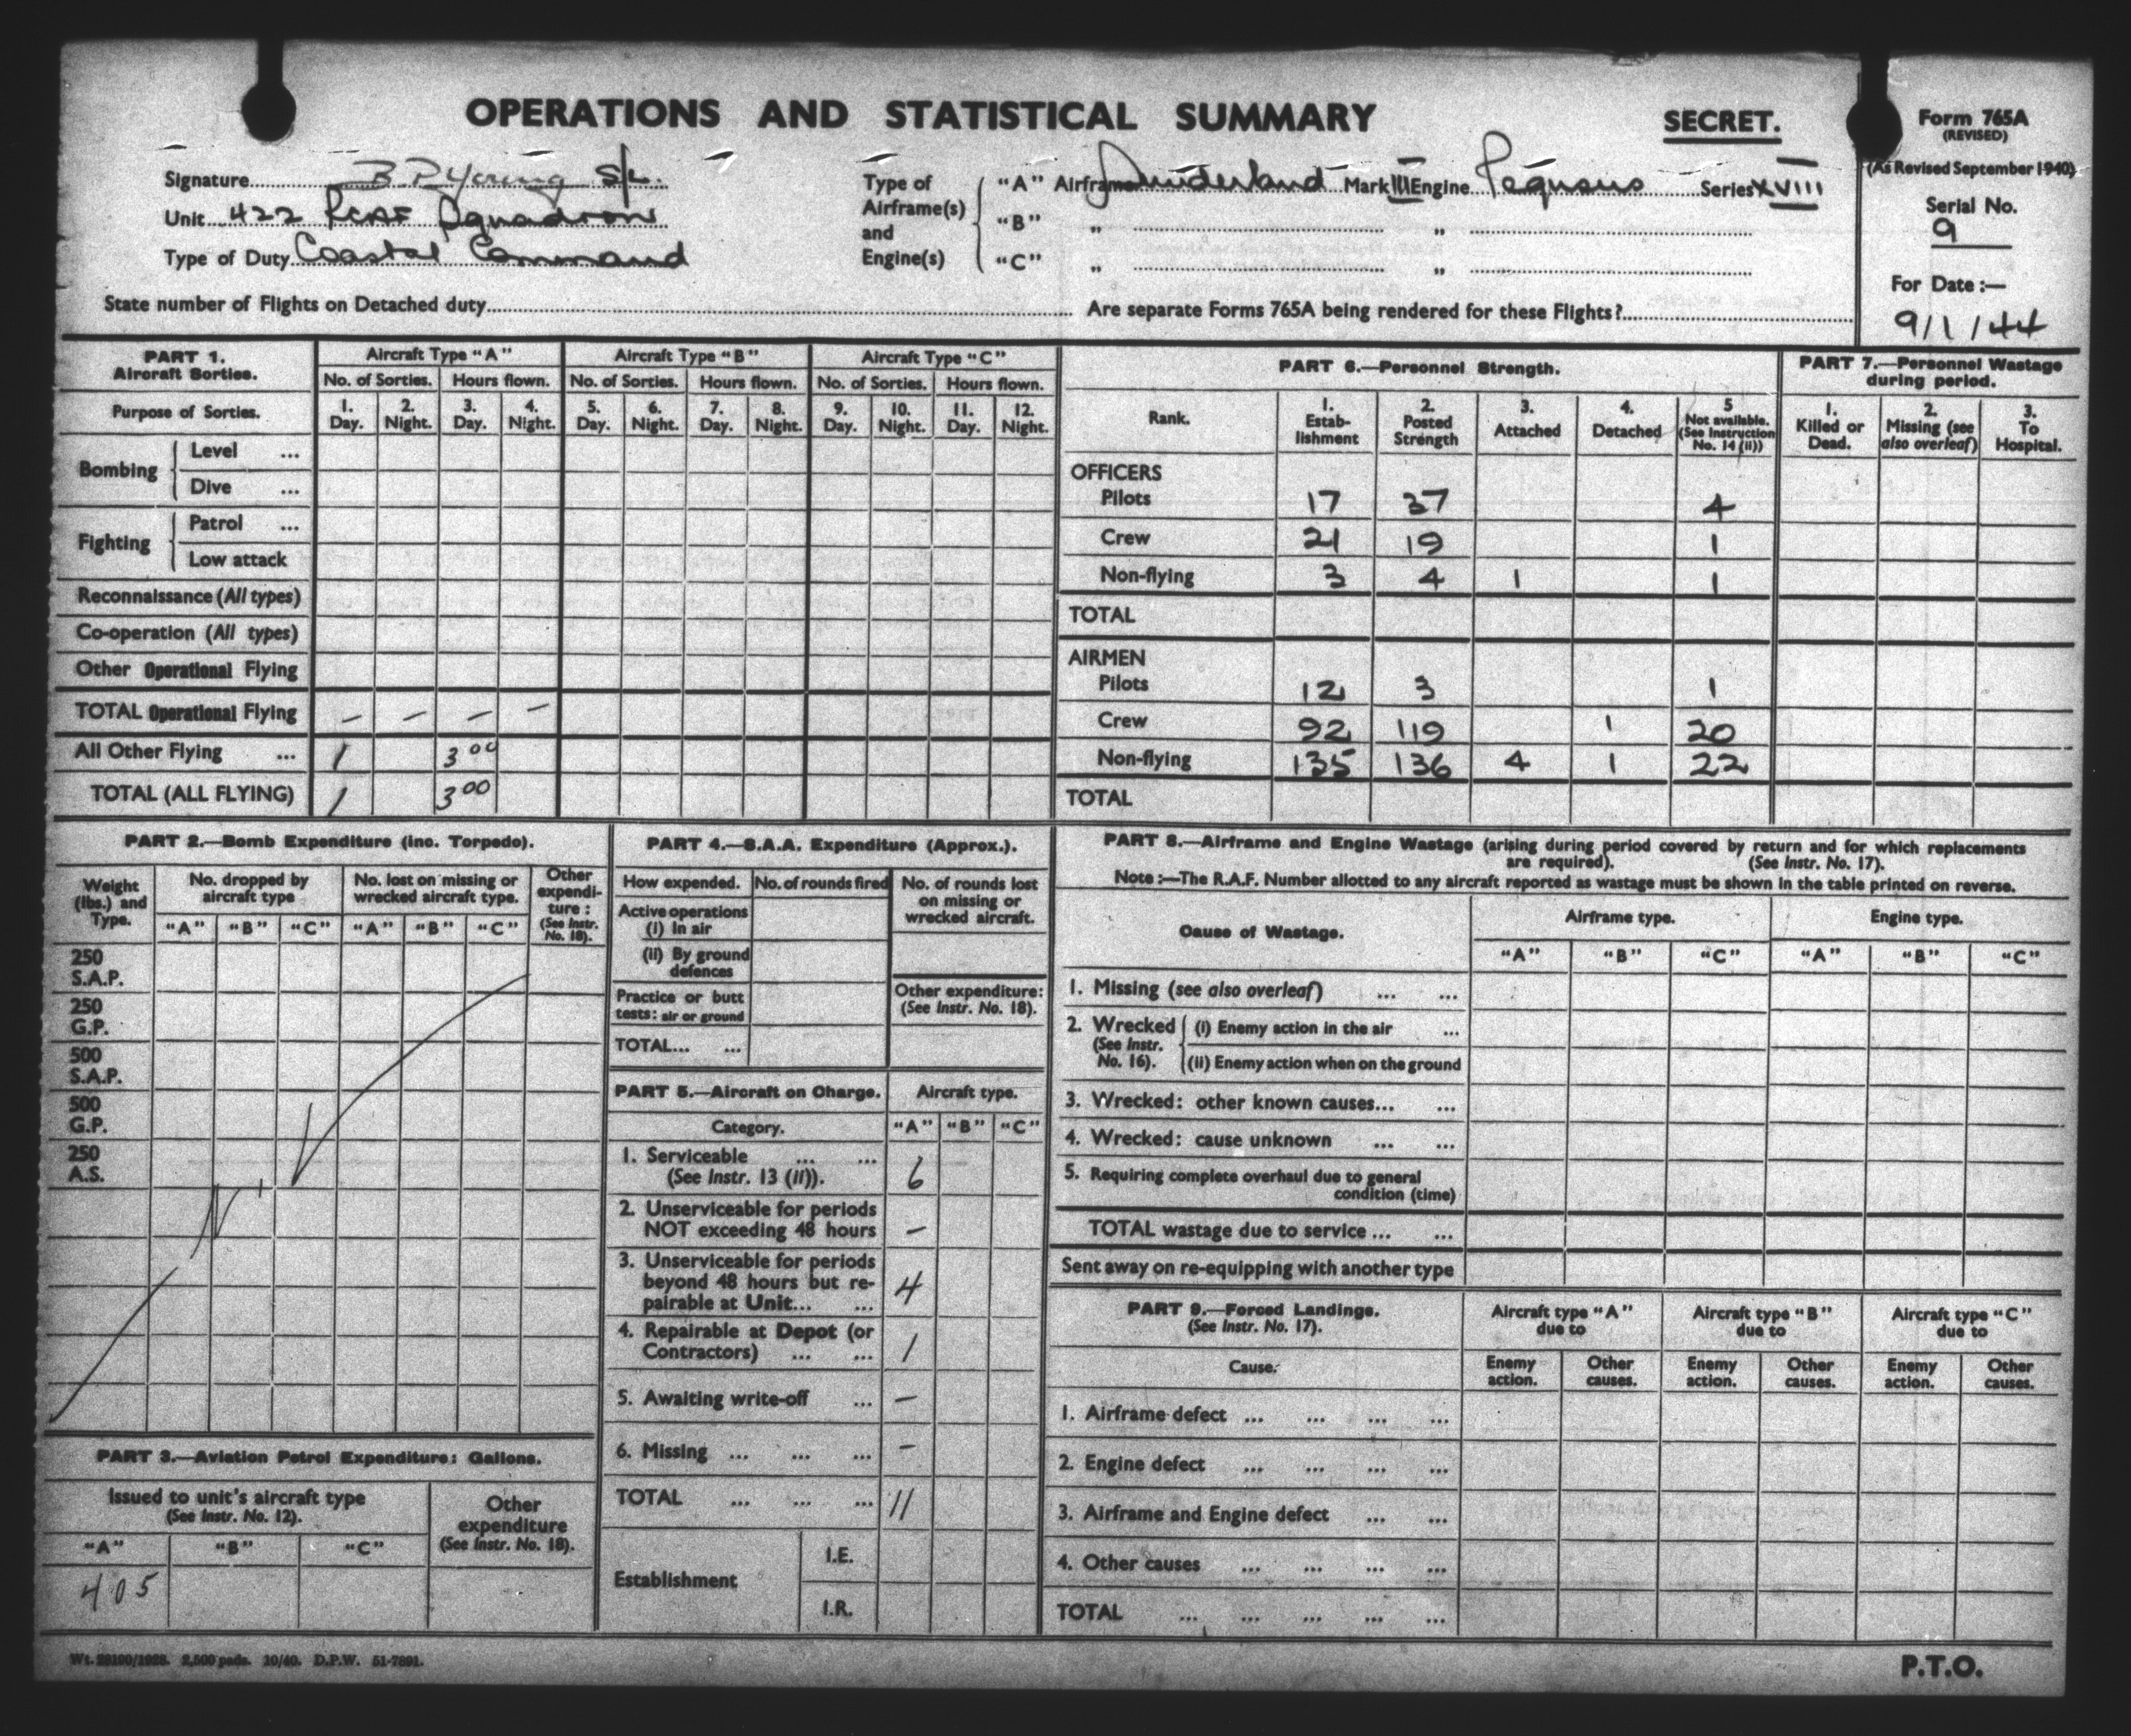 OPERATIONS AND STATISTICAL SUMMARY
SECRET.
Form 765A
(REVISED)
(As Revised September 1940)
Serial No.
9
For Date :—
9/1/44
Signature B P Young S/L.
Unit 422 RCAF Squadron
Type of Duty Coastal Command
Type of Airframe(s) and Engine(s)
"A" Airframe Sunderland Mark III Engine Pegusus Series XVIII
"B" „ „
"C" „ „
State number of Flights on Detached duty
Are separate Forms 765A being rendered for these Flights?
PART 1.
Aircraft Sorties.
Aircraft Type "A" Aircraft Type "B" Aircraft Type "C"
No. of Sorties. Hours flown. No. of Sorties. Hours flown. No. of Sorties. Hours flown.
Purpose of Sorties.
1. Day. 2. Night. 3. Day. 4. Night. 5. Day. 6. Night. 7. Day. 8. Night. 9. Day. 10. Night. 11. Day. 12. Night.
Bombing
Level ...
Dive ...
Fighting
Patrol ...
Low attack
Reconnaissance (All types)
Co-operation (All types)
Other Operational Flying
TOTAL Operational Flying — — — —
All Other Flying ... 1 3 00
TOTAL (ALL FLYING) 1 3 00
PART 6.—Personnel Strength.
Rank.
1. Estab-lishment
2. Posted Strength
3. Attached
4. Detached
5 Not available. (See Instruction No. 14 (ii))
OFFICERS
Pilots 17 37 4
Crew 21 19 1
Non-flying 3 4 1 1
TOTAL
AIRMEN
Pilots 12 3 1
Crew 92 119 1 20
Non-flying 135 136 4 1 22
TOTAL
PART 7.—Personnel Wastage
during period.
1. Killed or Dead.
2. Missing (see also overleaf)
3. To Hospital.
PART 2.—Bomb Expenditure (inc. Torpedo).
Weight (lbs.) and Type.
No. dropped by aircraft type
No. lost on missing or wrecked aircraft type.
Other expendi-ture : (See Instr. No. 18).
"A" "B" "C" "A" "B" "C"
250 S.A.P.
250 G.P.
500 S.A.P.
500 G.P.
250 A.S.
PART 3.—Aviation Petrol Expenditure: Gallons.
Issued to unit's aircraft type
(See Instr. No. 12).
Other expenditure
(See Instr. No. 18).
"A" "B" "C"
405
PART 4.—S.A.A. Expenditure (Approx.).
How expended. No. of rounds fired No. of rounds lost on missing or wrecked aircraft.
Active operations
(i) In air
(ii) By ground defences
Practice or butt tests: air or ground
Other expenditure: (See Instr. No. 18).
TOTAL... ...
PART 5.—Aircraft on Charge. Aircraft type.
Category. "A" "B" "C"
1. Serviceable ... ...
(See Instr. 13 (ii)). 6
2. Unserviceable for periods
NOT exceeding 48 hours —
3. Unserviceable for periods
beyond 48 hours but re-
pairable at Unit... ... 4
4. Repairable at Depot (or
Contractors) ... ... 1
5. Awaiting write-off ... —
6. Missing ... ... ... —
TOTAL ... ... ... 11
Establishment
I.E.
I.R.
PART 8.—Airframe and Engine Wastage (arising during period covered by return and for which replacements
are required). (See Instr. No. 17).
Note :—The R.A.F. Number allotted to any aircraft reported as wastage must be shown in the table printed on reverse.
Cause of Wastage. Airframe type. Engine type.
"A" "B" "C" "A" "B" "C"
1. Missing (see also overleaf) ... ...
2. Wrecked (See Instr. No. 16).
(i) Enemy action in the air ...
(ii) Enemy action when on the ground
3. Wrecked: other known causes... ...
4. Wrecked: cause unknown ... ...
5. Requiring complete overhaul due to general
condition (time)
TOTAL wastage due to service ... ...
Sent away on re-equipping with another type
PART 9.—Forced Landings.
(See Instr. No. 17).
Aircraft type "A" due to
Aircraft type "B" due to
Aircraft type "C" due to
Cause.
Enemy action. Other causes. Enemy action. Other causes. Enemy action. Other causes.
1. Airframe defect ... ... ... ...
2. Engine defect ... ... ... ...
3. Airframe and Engine defect ... ...
4. Other causes ... ... ... ...
TOTAL ... ... ... ... ...
Wt. 28190/1928. 2,500 pads. 10/40. D.P.W. 51-7891.
P.T.O.